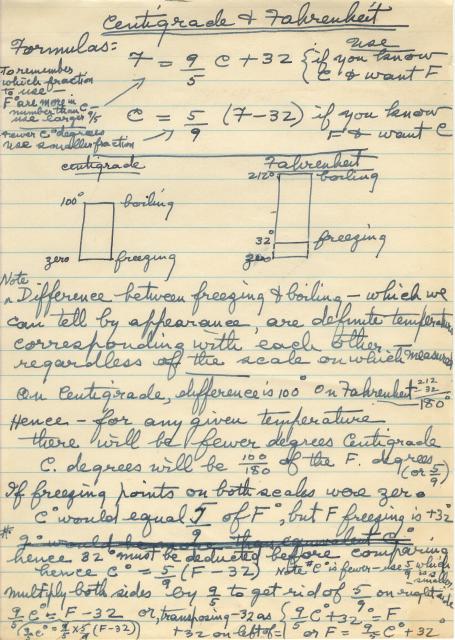 Centigrade & Fahrenheit
Formulas:
F = 9/5 C + 32 { if you know
Use
C & want F
To remember
which fraction
to use —
F° are more in
number than C —
use larger 9/5
C = 5/9 (F-32) if you know
F & want C
Fewer C° degrees
use smaller fraction
Centigrade
Fahrenheit
212° boiling
100° boiling
32° freezing
zero freezing
zero
Note
Difference between freezing & boiling — which we
can tell by appearance, are definite temperature
corresponding with each other —
regardless of the scale on which measured
On Centigrade, difference is 100° On Fahrenheit 212
-32
180°
Hence — for any given temperature
there will be fewer degrees Centigrade
C. degrees will be 100/180 of the F. degrees
(or 5/9)
If freezing points on both scales were zero
C° would equal 5/9 of F°, but F freezing is +32°
hence 32° must be deducted before comparing
hence C° = 5/9 (F - 32) Note "C° is fewer — use 5/9 which
is smaller
multiply both sides by 9/5 to get rid of 5/9 on right side
9/5 C° = F - 32 or, transposing -32 as { 9/5 C° + 32° = F
(9/5 C° = 9/5 x 5/9 (F - 32) +32 on left of = { or F° = 9/5 C° + 32